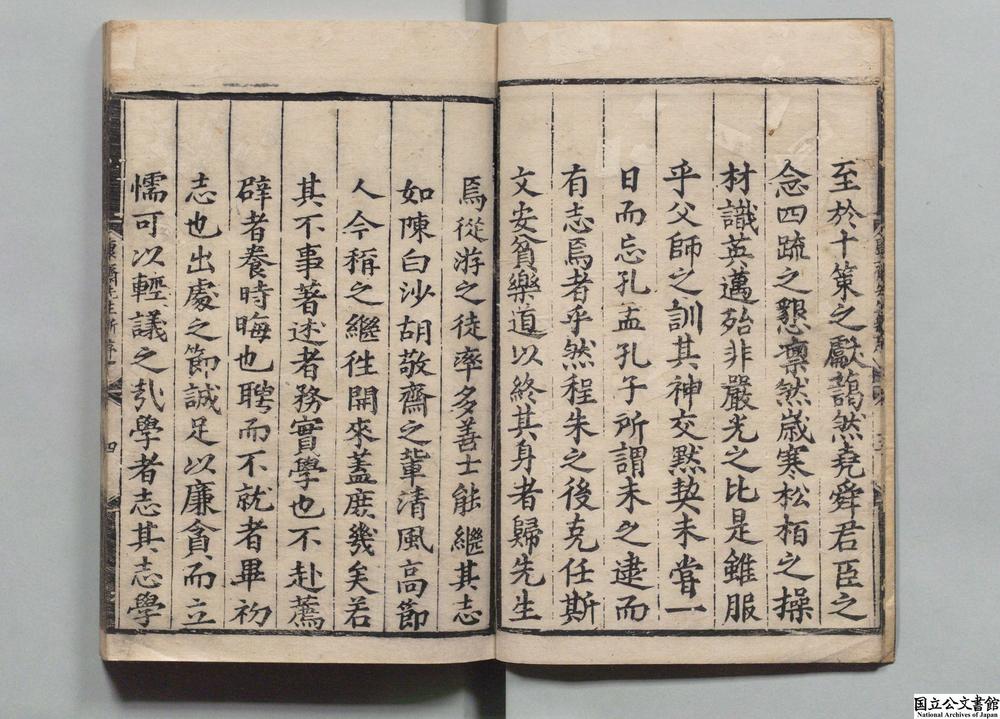 至於十策之獻藹然堯舜君臣之
念四疏之懇凛然歳寒松栢之操
材識英邁殆非嚴光之比是雖服
乎父師之訓其神交黙契未嘗一
日而忘孔孟孔子所謂未之逮而
有志焉者乎然程朱之後克任斯
文安貧樂道以終其身者歸先生
焉從游之徒率多善士能繼其志
如陳白沙胡敬齋之輩清風高節
人今稱之繼徃開來蓋庶幾矣若
其不事著述者務實學也不赴薦
辟者養時晦也聘而不就者畢初
志也出處之節誠足以廉貪而立
懦可以輕議之㢤學者志其志學
康齋先生
四
国立公文書館
National Archives of Japan